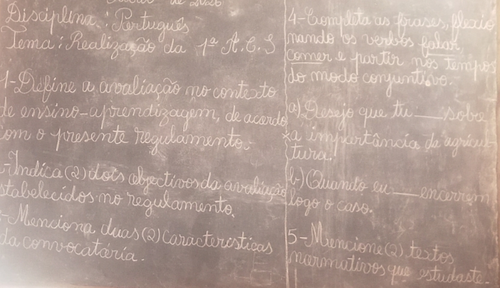 Disciplina: Português
Tema: Realização da 1ª A.C.S
1-Define a avaliação no contexto
de ensino-aprendizagem, de acordo
com o presente regulamento.
2-Indica (2) dois objectivos da avaliação
estabelecidos no regulamento.
3-Menciona duas (2) características
da convocatária.
4-Completa as frases, flexio
nando os verbos falar,
comer e partir nos tempos
do modo conjuntivo.
a) Desejo que tu ___ sobre
a importância de agricul
tura!
b) Quando eu ___ encerrem
logo o caso.
5-Mencione (2) textos
normutivos que estudaste.